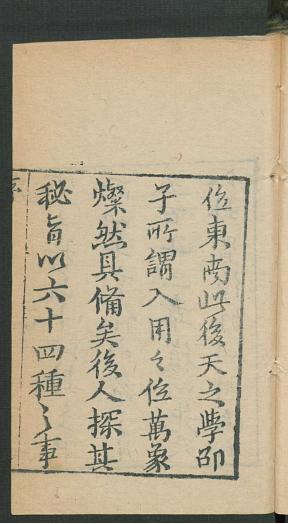 位東南此後天之學邵
子所謂入用之位萬象
燦然具備矣後人探其
秘旨以六十四種之事